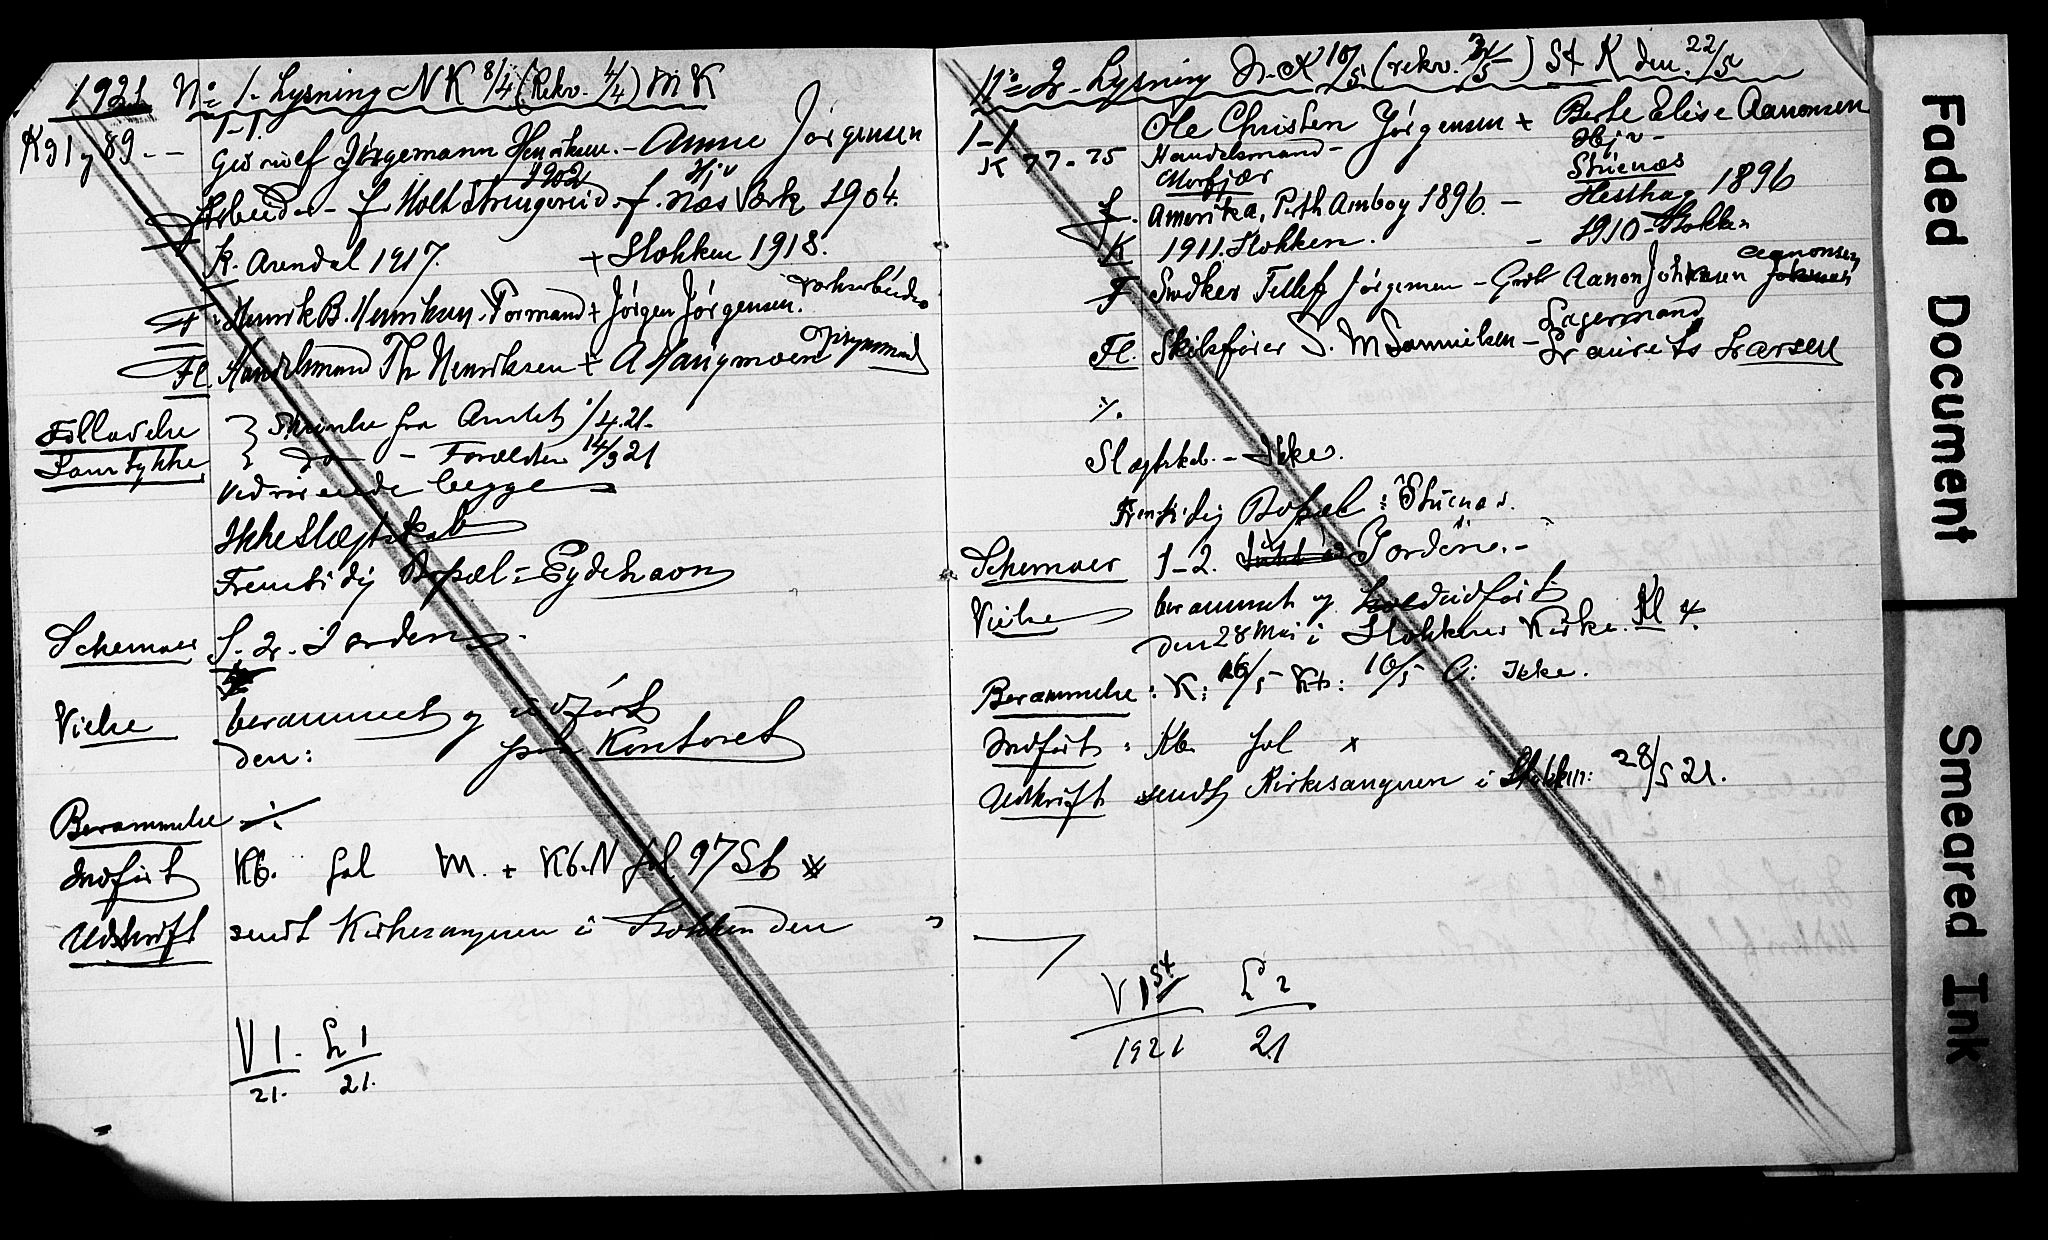 1921 No 1. Lysning NK 8/4 (Rekv. 4/4) MK
K 91 y 89. - 1-1.
Jørgemann Henriksen. - Anne Jørgensen
1902 Hjv
Arbeider - f Holt - f. Næs Værk 1904.
K. Arendal 1917. + Stokken 1918.
F Henrik B. Henriksen. Formand + Jørgen Jørgensen.
Fl. Handelsmand Th Henriksen + A
Tilladelse Skrivelse fra Amtet /4.21.
Samtykke do - Forældre 14/3 21
vedrørende begge
Ikke Slægtskab
Fremtidig Bopæl = Eydehavn
Schemaer 1. 2. I orden.
Vielse berammet og udført
den: paa Kontoret
Berammelse ./.
Indført Kb. fol M. + Kb. N fol. 97 St
Udskrift sendt Kirkesangeren i Stokken den
V 1. L 1
21. 21.
No 2 - Lysning N. K 10/5 (rekv. /5) St K den. 22/5
1-1 Ole Christen Jørgensen + Berte Elise Aanonsen
K 77-75 Handelsmand - Hjv -
Morfjær Stuenæs
f. Amerika, Perth Amboy 1896. - Hesthag 1896
K 1911. Stokken. - 1910 - Stokken
F Snedker Tellef Jørgensen - Aanon Aanonsen
Lagermand
Fl. Skibsfører S. M Samuelsen - Laurits Larsen
./.
Slægtskab. - Ikke.
Fremtidig Bopæl : Stuenæs.
Schemaer 1-2. I orden. -
Vielse berammet og udført
den 28 Mai i Stokken Kirke. Kl 4.
Berammelse : K: 16/5 Kb: 16/5 O: Ikke.
Indført : Kb. fol x
Udskrift sendt Kirkesangeren i Stokken: 28/5 21.
V 1 St L 2
1921 21
Faded Document
Smeared Ink